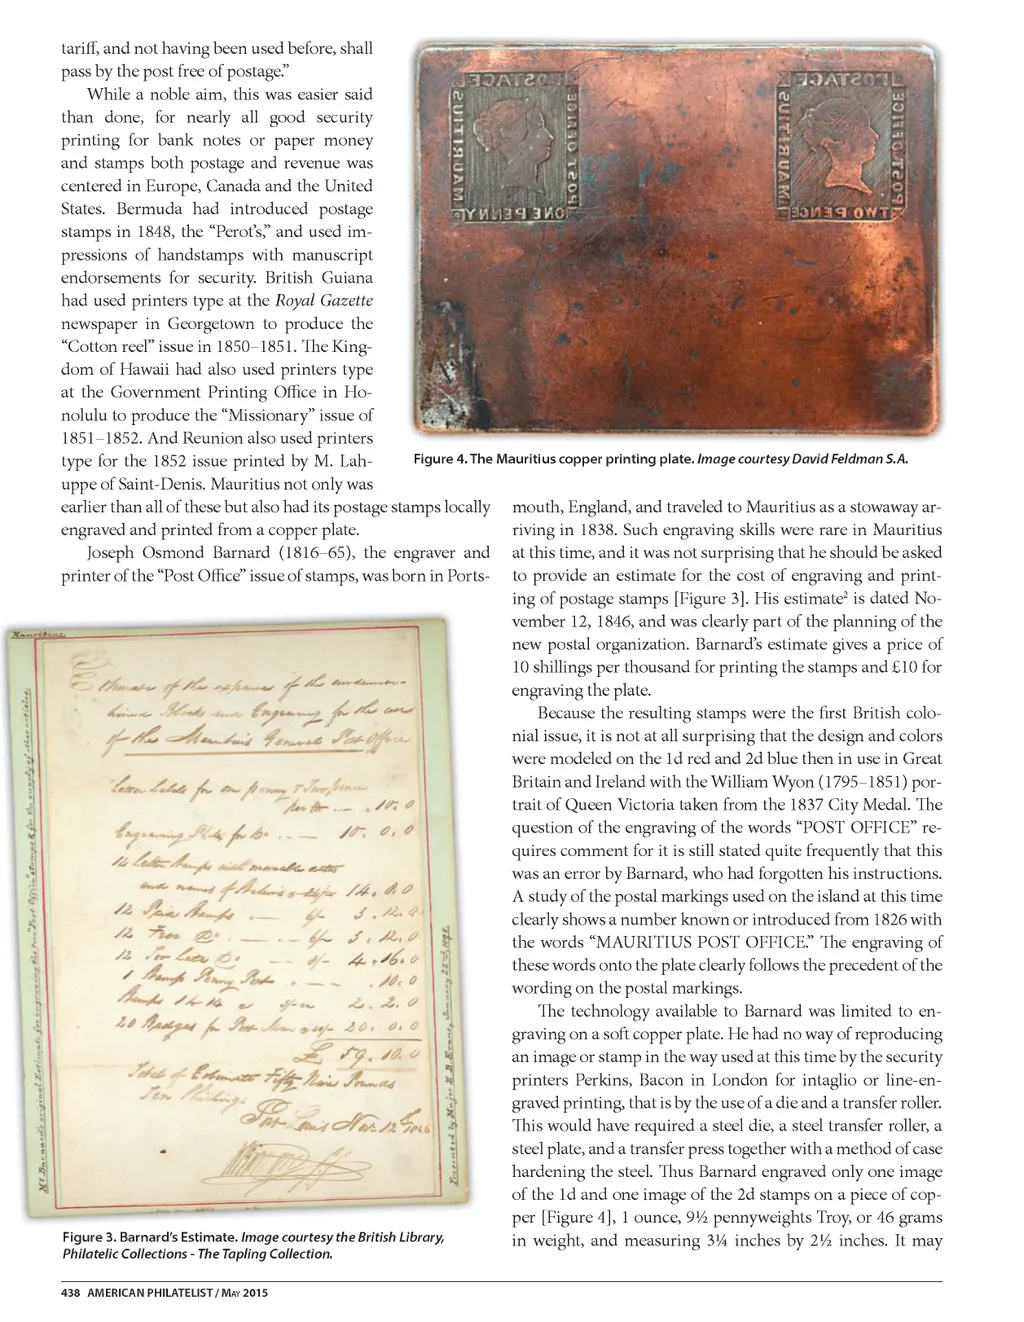 tariff, and not having been used before, shall
pass by the post free of postage.”
While a noble aim, this was easier said
than done, for nearly all good security
printing for bank notes or paper money
and stamps both postage and revenue was
centered in Europe, Canada and the United
States. Bermuda had introduced postage
stamps in 1848, the “Perot’s,” and used im-
pressions of handstamps with manuscript
endorsements for security. British Guiana
had used printers type at the Royal Gazette
newspaper in Georgetown to produce the
“Cotton reel” issue in 1850–1851. The King-
dom of Hawaii had also used printers type
at the Government Printing Office in Ho-
nolulu to produce the “Missionary” issue of
1851–1852. And Reunion also used printers
type for the 1852 issue printed by M. Lah-
uppe of Saint-Denis. Mauritius not only was
earlier than all of these but also had its postage stamps locally
engraved and printed from a copper plate.
Joseph Osmond Barnard (1816–65), the engraver and
printer of the “Post Office” issue of stamps, was born in Ports-
POSTAGE
MAURITIUS
POST OFFICE
ONE PENNY
POSTAGE
MAURITIUS
POST OFFICE
TWO PENCE
Figure 4. The Mauritius copper printing plate. Image courtesy David Feldman S.A.
Mauritius
Estimate of the expenses of the undermen-
tioned Blocks and Engraving for the use
of the Mauritius General Post Office
Letter Labels for one penny & Two pence
per th 10. 0
Engraving Plate for Do 10. 0. 0
14 Letter Stamps with moveable dates
and names of 14. 8. 0
12 Paid Stamps 6/- 3. 12. 0
12 Free Do 6/- 3. 12. 0
12 Too Late Do 8/- 4. 16. 0
1 Stamp Penny Post 10. 0
Stamps 2. 2. 0
20 Badges for Post Men 20. 0. 0
£ 59. 10. 0
Total of Estimate Fifty Nine Pounds
Ten Shillings
Port Louis Nov 12th 1846
Mr Barnard's original Estimate for engraving the two "Post Office" stamps & for the supply of other articles.
Presented by Major E. B. Evans, January 22nd,
Figure 3. Barnard’s Estimate. Image courtesy the British Library,
Philatelic Collections - The Tapling Collection.
mouth, England, and traveled to Mauritius as a stowaway ar-
riving in 1838. Such engraving skills were rare in Mauritius
at this time, and it was not surprising that he should be asked
to provide an estimate for the cost of engraving and print-
ing of postage stamps [Figure 3]. His estimate² is dated No-
vember 12, 1846, and was clearly part of the planning of the
new postal organization. Barnard’s estimate gives a price of
10 shillings per thousand for printing the stamps and £10 for
engraving the plate.
Because the resulting stamps were the first British colo-
nial issue, it is not at all surprising that the design and colors
were modeled on the 1d red and 2d blue then in use in Great
Britain and Ireland with the William Wyon (1795–1851) por-
trait of Queen Victoria taken from the 1837 City Medal. The
question of the engraving of the words “POST OFFICE” re-
quires comment for it is still stated quite frequently that this
was an error by Barnard, who had forgotten his instructions.
A study of the postal markings used on the island at this time
clearly shows a number known or introduced from 1826 with
the words “MAURITIUS POST OFFICE.” The engraving of
these words onto the plate clearly follows the precedent of the
wording on the postal markings.
The technology available to Barnard was limited to en-
graving on a soft copper plate. He had no way of reproducing
an image or stamp in the way used at this time by the security
printers Perkins, Bacon in London for intaglio or line-en-
graved printing, that is by the use of a die and a transfer roller.
This would have required a steel die, a steel transfer roller, a
steel plate, and a transfer press together with a method of case
hardening the steel. Thus Barnard engraved only one image
of the 1d and one image of the 2d stamps on a piece of cop-
per [Figure 4], 1 ounce, 9½ pennyweights Troy, or 46 grams
in weight, and measuring 3¼ inches by 2½ inches. It may
438 AMERICAN PHILATELIST / MAY 2015